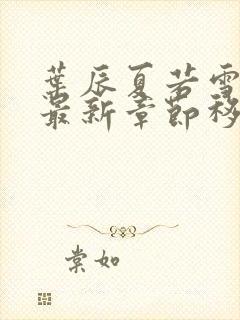 葉辰夏若雪
最新章節移
棠如